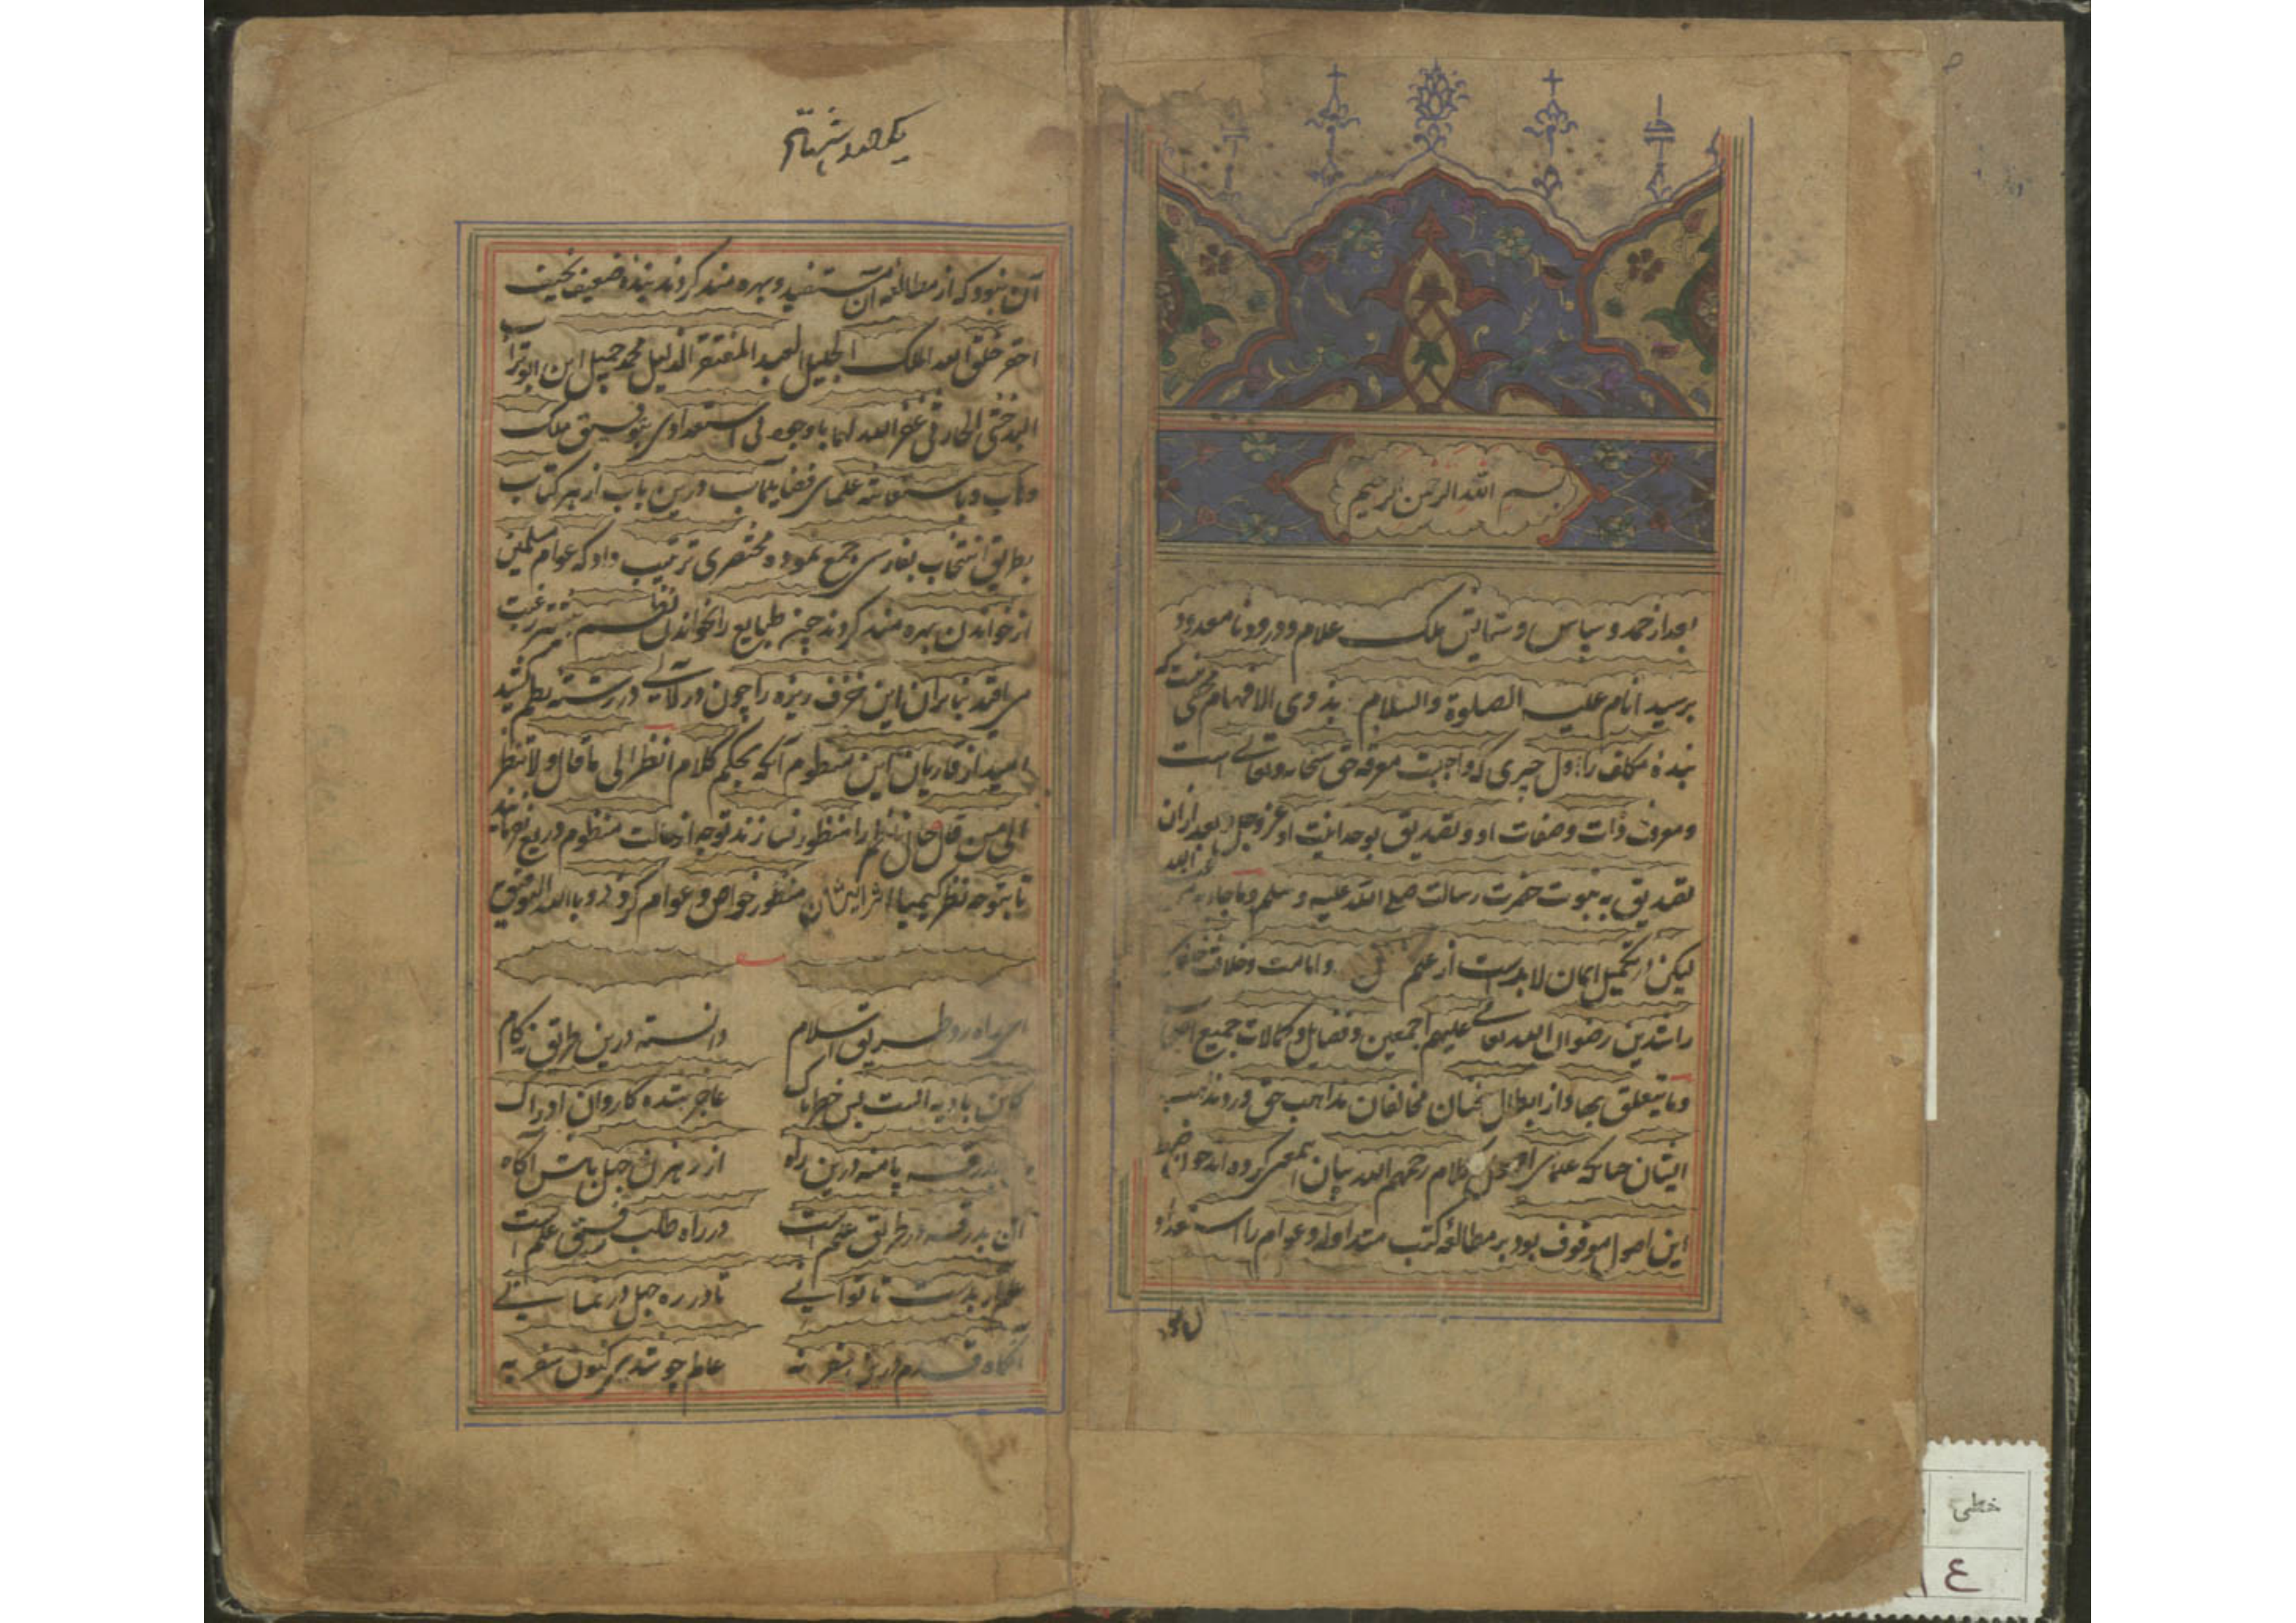 بسم الله الرحمن الرحیم
بعد از حمد و سپاس و ستایش ملک علام و درود نامعدود
بر سید انام علیه الصلوة والسلام بذوی الافهام مخفی نیست که
بندهٔ مکلف را اول چیزی که واجبست معرفة حق سبحانه وتعالی است
و معرفت ذات و صفات او و تصدیق بوحدانیت او عز وجل و بعد ازان
تصدیق به نبوت حضرت رسالت صلی الله علیه وسلم وماجاء به من
عند الله
لیکن در تکمیل ایمان لابدست از علم و امامت و خلافت خلفای
راشدین رضوان الله تعالی علیهم اجمعین و فضایل و کمالات جمیع
وما یتعلق بها و از ابطال سخنان مخالفان مذاهب حق و رد مذاهب
ایشان چنانکه علمای کلام رحمهم الله بیان کرده اند چون ضبط
این اصول موقوف بود بر مطالعهٔ کتب متداوله و عوام را استعداد
آن نبود که از مطالعه آن مستفید و بهره مند گردند بندهٔ ضعیف نحیف
احقر خلق الله الملک الجلیل العبد المفتقر الذلیل محمد جمیل ابن ابوتراب
البدخشی الحارثی غفر الله لهما باوجود بی استعدادی بتوفیق ملک
وهاب و باستعانة علمای فضایلمآب درین باب از هر کتاب
بطریق انتخاب بفارسی جمع نموده مختصری ترتیب داد که عوام مسلمین
از خواندن بهره مند گردند چون طبایع را بخواندن نظم بیشتر رغبت
می افتد بنابران این خزف ریزه را چون در لآلی در رشته نظم کشید
امید از قاریان این منظوم آنکه بحکم کلام انظر الی ما قال ولا تنظر
الی من قال حال ناظم را منظور نسازند توجه از حالت منظوم دریغ ننمایند
تا بتوجه نظر کیمیا اثر ایشان منظور خواص و عوام گردد وبالله التوفیق
ای راه رو طریق اسلام دانسته درین طریق نه گام
کاین بادیه است بس خطرناک عاجز شده کاروان ادراک
بدرقه پا منه درین راه از رهزن جهل باش آگاه
آن بدرقه در طریق علم است در راه طلب رفیق علم است
علم آر بدست تا توانی تا در ره جهل در نمانی
آنگاه قدم درین سفر نه عالم چو شدی کنون سفر به
خطی
٤